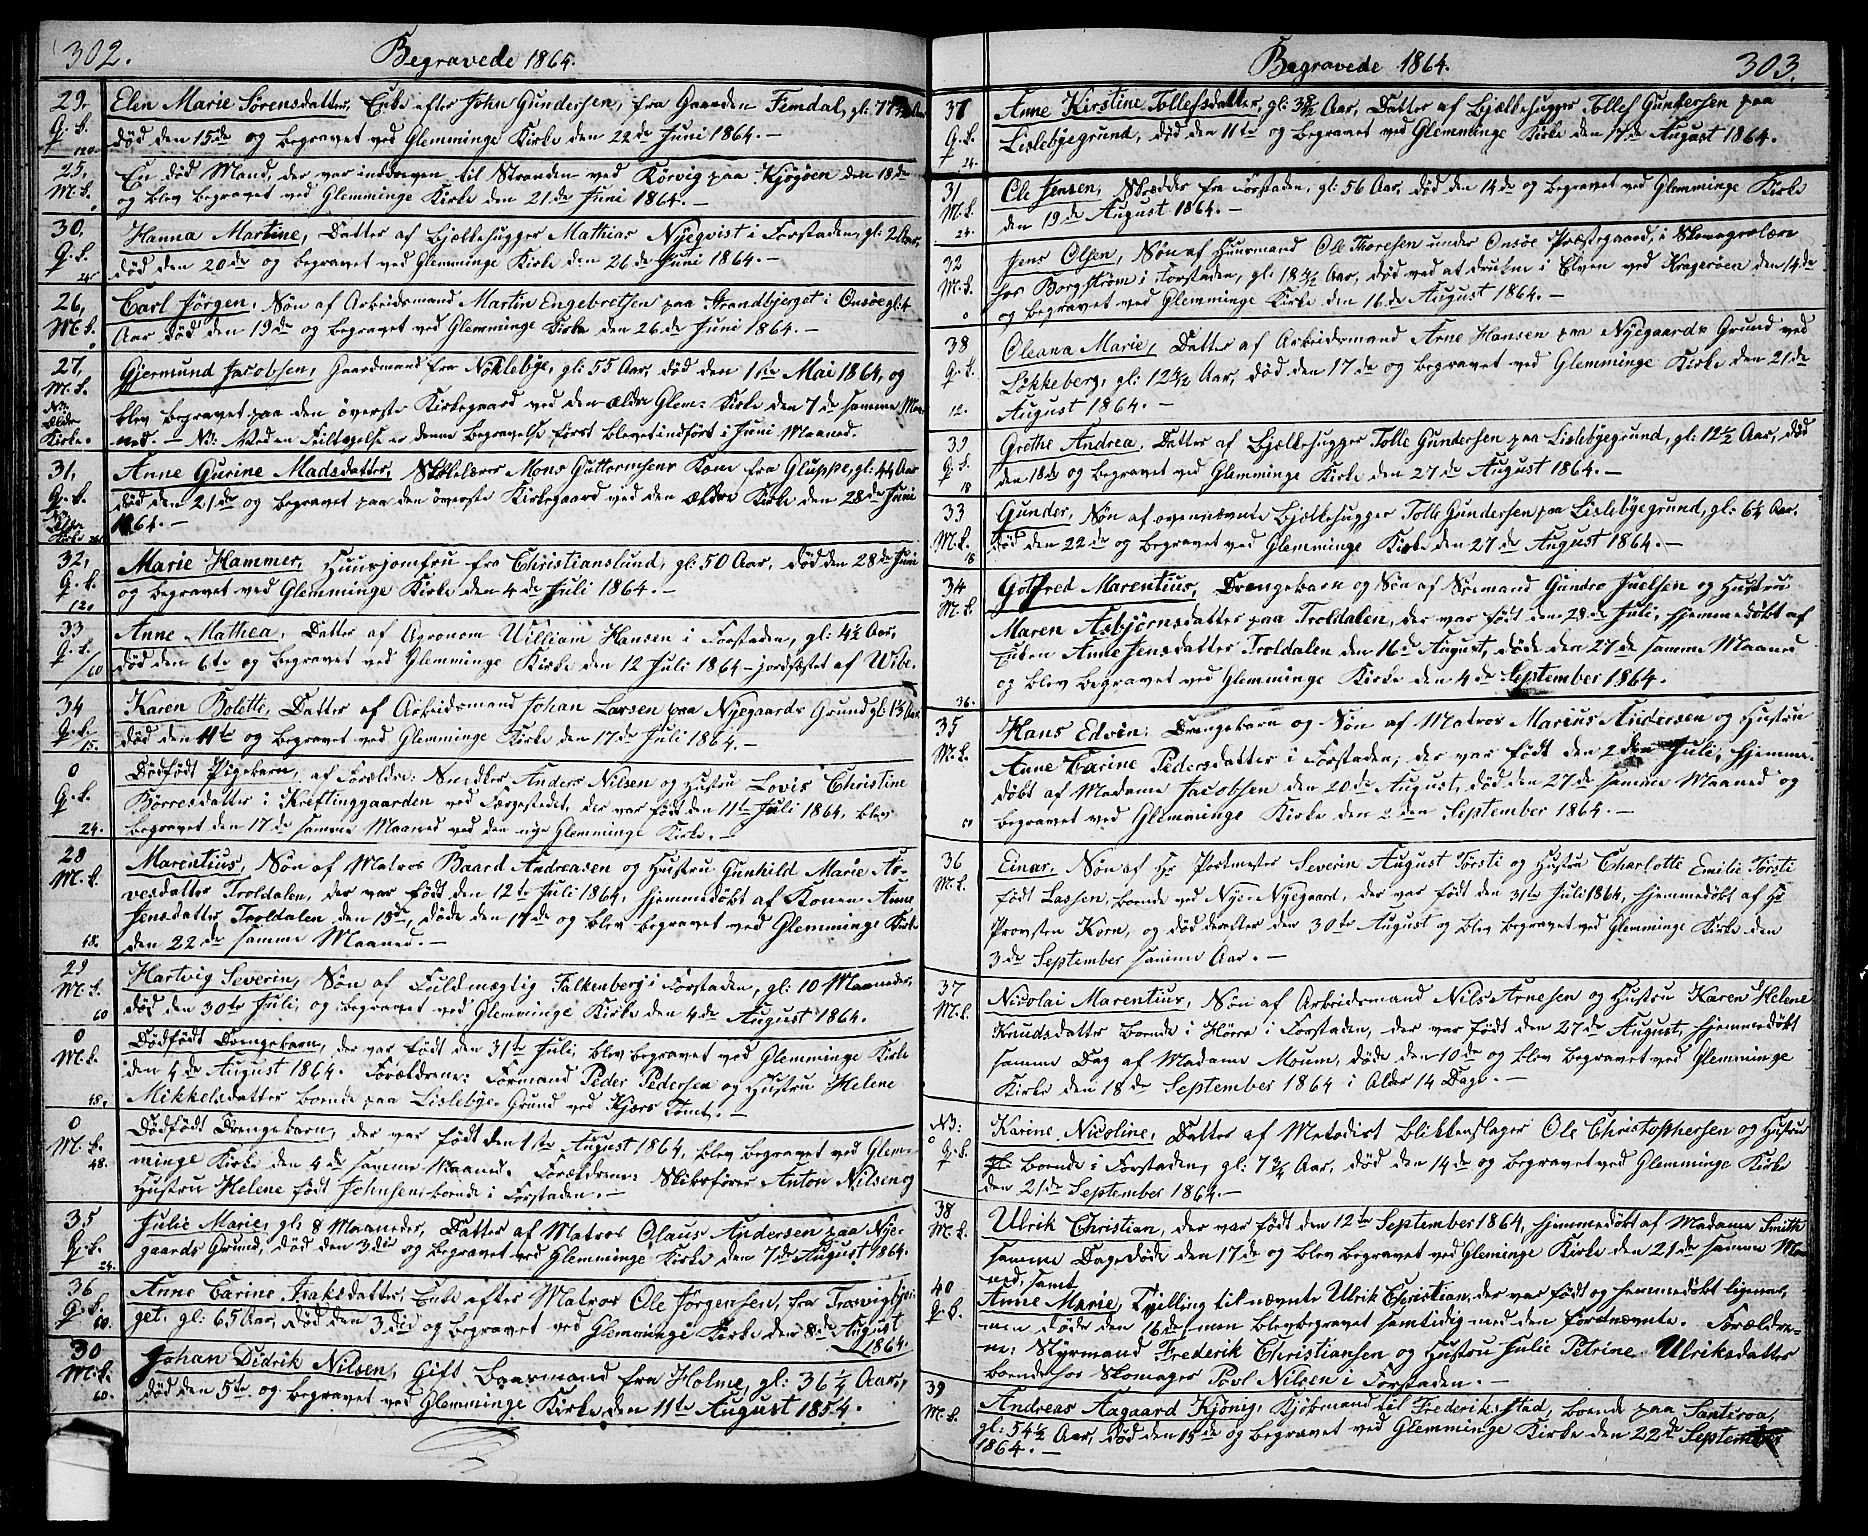 302.
Begravede 1864.
29.
Q. K.
120.
Elen Marie Sørensdatter, Enke efter John Gundersen, fra Gaarden Femdal, gl: 77
død den 15de og begravet ved Glemminge Kirke den 22de Juni 1864. —
25,
M. K.
0
En død Mand, der var inddreven til Stranden ved Kørvig paa Kjøgøen den 18de
og blev begravet ved Glemminge Kirke den 21de Juni 1864. —
30,
Q. K.
24.
Hanna Martine, Datter af Bjælkehugger Mathias Nyeqvist i Forstaden, gl: 2 Aar,
død den 20de og begravet ved Glemminge Kirke den 26de Juni 1864. —
26,
M. K.
Carl Jørgen, Søn af Arbeidsmand Martin Engebretsen paa Strandbjerget i Onsøe gl: 4
Aar død den 19de og begravet ved Glemminge Kirke den 26de Juni 1864. —
27,
M. K.
Nb:
Ældre
Kirke.
Gjermund Jacobsen, Gaardmand fra Nøklebye, gl: 55 Aar, død den 1ste Mai 1864, og
blev begravet paa den øverste Kirkegaard ved den ældre Glem: Kirke den 7de samme Maa-
ned. — Nb: Ved en Feiltagelse er denne Begravelse først blevet indført i Juni Maaned.
31,
Q. K.
Nb:
Ældre
Kirke
Anne Gurine Madsdatter, Skolelærer Mons Guttormsens Kone fra Gluppe, gl: 44 Aar
død den 21de og begravet paa den øverste Kirkegaard ved den ældre Kirke den 28de Juni
1864. —
32,
Q. K.
120
Marie Hammer, Huusjomfru fra Christianslund, gl: 50 Aar, død den 28de Juni
og begravet ved Glemminge Kirke den 4de Juli 1864. —
33
Q. K.
60
Anne Mathea, Datter af Agronom William Hansen i Forstaden, gl: 4½ Aar,
død den 6te og begravet ved Glemminge Kirke den 12 Juli 1864 — jordfæstet af Wibe.
34
Q. K.
15.
Karen Bolette, Datter af Arbeidsmand Johan Larsen paa Nyegaards Grund gl: 1½ Aar
død den 11te og begravet ved Glemminge Kirke den 17de Juli 1864. —
0
Q. K.
24.
Dødfødt Pigebarn, af Forældre: Snedker Anders Nilsen og Hustru Lovis Christine
Børresdatter i Kreftinggaarden ved Færgestedet, der var født den 11te Juli 1864, blev
begravet den 17de samme Maaned ved den nye Glemminge Kirke. —
28
M. K.
18.
Marentius, Søn af Matros Baard Andreasen og Hustru Gunhild Marie Ar-
vesdatter Troldalen, der var født den 12te Juli 1864, hjemmedøbt af Konen Anne
Jensdatter, Troldalen den 15de, døde den 17de og blev begravet ved Glemminge Kirke
den 22de samme Maaned. —
29
M. K.
60
Hartvig Severin, Søn af Fuldmægtig Falkenberg i Forstaden, gl: 10 Maaneder,
død den 30te Juli, og begravet ved Glemminge Kirke den 4de August 1864.
0
M. K.
48.
Dødfødt Drengebarn, der var født den 31te Juli, blev begravet ved Glemminge Kirke
den 4de August 1864. Forældrene: Formand Peder Pedersen og Hustru Helene
Mikkelsdatter boende paa Lislebye Grund ved Kjærs Tomt. —
0
M. K.
48.
Dødfødt Drengebarn, der var født den 1ste August 1864, blev begravet ved Glem-
minge Kirke den 4de samme Maaned. Forældrene: Skibsfører Anton Nilsen og
Hustru Helene født Johnsen boende i Forstaden. —
35
Q. K.
24.
Julie Marie, gl: 8 Maaneder, Datter af Matros Olaus Andersen paa Nye-
gaards Grund, død den 3die og begravet ved Glemminge Kirke den 7de August 1864.
36
Q. K.
60.
Anne Carine Isaksdatter, Enke efter Matros Ole Jørgensen, fra
get, gl: 65 Aar, død den 3die og begravet ved Glemminge Kirke den 8de August
1864.
30
M. K.
60.
Johan Didrik Nilsen, Gift Baarmand fra Holme, gl: 36¼ Aar,
død den 5te og begravet ved Glemminge Kirke den 11te August 1854.
Begravede 1864.
303.
37
Q. K.
24.
Anne Kirstine Tollefsdatter, gl: 3 Aar, Datter af Bjælkehugger Tollef Gundersen paa
Lislebyegrund, død den 11te og begravet ved Glemminge Kirke den 17de August 1864.
31
M. K.
24.
Ole Jensen, Skrædder fra Forstaden, gl: 56 Aar, død den 14de og begravet ved Glemminge Kirke
den 19de August 1864. —
32
M. K.
0
Jens Olsen, Søn af Huusmand Ole Thoresen under Onsøe Præstegaard, i Skomagerlære
hos Borgstrøm i Forstaden, gl: 18½ Aar, død ved at drukne i Elven ved Kragerøen den 14de
og begravet ved Glemminge Kirke den 16de August 1864. —
38
Q. K.
12.
Oleana Marie, Datter af Arbeidsmand Arne Hansen paa Nyegaards Grund ved
Løkkeberg, gl: 12 Aar, død den 17de og begravet ved Glemminge Kirke den 21de
August 1864. —
39
Q. K.
18
Grethe Andrea, Datter af Bjælkehugger Tolle Gundersen paa Lislebyegrund, gl: 12½ Aar, død
den 18de og begravet ved Glemminge Kirke den 27de August 1864. —
33
M. K.
18
Gunder, Søn af ovennævnte Bjælkehugger Tolle Gundersen paa Lislebyegrund, gl: 6¼ Aar,
død den 22de og begravet ved Glemminge Kirke den 27de August 1864. —
34
M. K.
36.
Gotfred Marentius, Drengebarn og Søn af Sømand Gundro Juelsen og Hustru
Maren Asbjørnsdatter paa Troldalen, der var født den 28de Juli, hjemmedøbt af
Anne Jensdatter Troldalen den 16de August, døde den 27de samme Maaned
og blev begravet ved Glemminge Kirke den 4de September 1864.
35
M. K.
Hans Edvin, Drengebarn og Søn af Matros Marius Andersen og Hustru
Anne Carine Pedersdatter i Forstaden, der var født den 2den Juli, hjemme-
døbt af Madame Jacobsen den 20de August, død den 27de samme Maaned og
begravet ved Glemminge Kirke den 2den September 1864. —
36
M. K.
Einar, Søn af Hr Postmester Severin August Tørsti og Hustru Charlotte Emilie Tørsti
født Lassen, boende ved Nye-Nyegaard, der var født den 31te Juli 1864, hjemmedøbt af Hr
Provsten Korn, og død derefter den 30te August og blev begravet ved Glemminge Kirke den
3de September samme Aar. —
37
M. K.
Nicolai Marentius, Søn af Arbeidsmand Nils Arnesen og Hustru Karen Helene
Knudsdatter boende i Forstaden, der var født den 27de August, hjemmedøbt
samme Dag af Madame Moum, døde den 10de og blev begravet ved Glemminge
Kirke den 18de September 1864 i Alder 14 Dage. —
Nb:
0
Q. K.
Karine Nicoline, Datter af Metodist Blikkenslager Ole Christophersen og Hustru
boende i Forstaden, gl: 7¾ Aar, død den 14de og begravet ved Glemminge Kirke
den 21de September 1864. —
38
M. K.
Ulrik Christian, der var født den 12te September 1864, hjemmedøbt af Madame Smith
samme Dag døde den 17de og blev begravet ved Gleminge Kirke den 21de samme Maa-
ned, samt
40
Q. K.
Anne Marie, Tvilling til nævnte Ulrik Christian, der var født og hjemmedøbt ligesaa,
men døde den 16de, men blev begravet samtidig med den Fornævnte. Forældre-
ne: Styrmand Frederik Christiansen og Hustru Julie Petrine Ulriksdatter
boende hos Skomager Povl Nilsen i Forstaden. —
39
M. K.
Andreas Aagaard Kjønig, Kjøbmand til Frederiksstad, boende paa Santeroa,
gl: 54½ Aar, død den 15de og begravet ved Glemminge Kirke den 22de September
1864. —